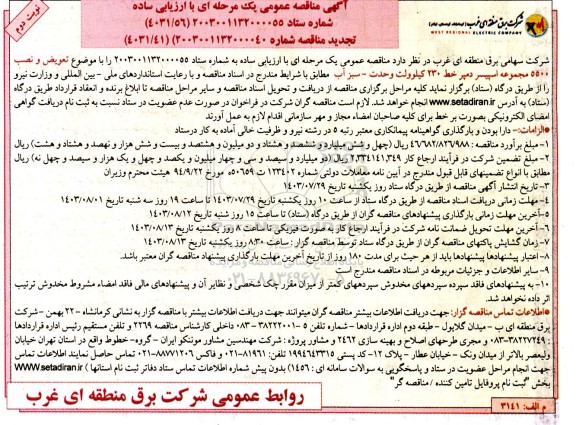 آگهی مناقصه عمومی یک مرحله ای با ارزیابی ساده
شماره ستاد ۲۰۰۳۰۰۱۱۳۲۰۰۰۰۵۵ (۴۰۳۱/۵۶)
تجدید مناقصه شماره ۲۰۰۳۰۰۱۱۳۲۰۰۰۰۴۰ (۴۰۳۱/۴۱)
نوبت دوم
شرکت برق منطقه ای غرب
WEST REGIONAL ELECTRIC COMPANY
شرکت سهامی برق منطقه ای غرب در نظر دارد مناقصه عمومی یک مرحله ای با ارزیابی ساده به شماره ستاد ۲۰۰۳۰۰۱۱۳۲۰۰۰۰۵۵ را با موضوع تعویض و نصب
۵۵۰۰ مجموعه اسپیسر دمپر خط ۲۳۰ کیلوولت وحدت - سبز آب مطابق با شرایط مندرج در اسناد مناقصه و با رعایت استانداردهای ملی - بین المللی و وزارت نیرو
را از طریق درگاه (ستاد) برگزار نماید کلیه مراحل برگزاری مناقصه از دریافت و تحویل اسناد مناقصه و سایر مراحل مناقصه تا ابلاغ برنده و انعقاد قرارداد طریق درگاه
(ستاد) به آدرس www.setadiran.ir انجام خواهد شد. لازم است مناقصه گران شرکت در فراخوان در صورت عدم عضویت در ستاد نسبت به ثبت نام دریافت گواهی
امضای الکترونیکی بصورت بر خط برای کلیه صاحبان امضاء مجاز و مهر سازمانی اقدام لازم به عمل آورند
*الزامات:- دارا بودن و بارگذاری گواهینامه پیمانکاری معتبر رتبه ۵ در رشته نیرو و ظرفیت خالی آماده به کار درستاد
۱- مبلغ برآورد مناقصه : ۴۶/۶۸۲/۸۲۶/۹۸۸ ریال (چهل و شش میلیارد و ششصد و هشتاد و دو میلیون و هشتصد و بیست و شش هزار و نهصد و هشتاد و هشت) ریال
۲- مبلغ تضمین شرکت در فرآیند ارجاع کار ۲,۳۳۴,۱۴۱,۳۴۹ ریال (دو میلیارد و سیصد و سی و چهار میلیون و یکصد و چهل و یک هزار و سیصد و چهل نه) ریال
مطابق با انواع تضمینهای قابل قبول مندرج در آیین نامه معاملات دولتی شماره ۱۲۳۴۰۲ ت ۵۰۶۵۹ه مورخ ۹۴/۹/۲۲ هیئت محترم وزیران
۳- تاریخ انتشار آگهی مناقصه از طریق درگاه ستاد روز یکشنبه تاریخ ۱۴۰۳/۰۷/۲۹
۴- مهلت زمانی دریافت اسناد مناقصه از طریق درگاه ستاد از ساعت ۱۰ روز یکشنبه تاریخ ۱۴۰۳/۰۷/۲۹ تا ساعت ۱۹ روز سه شنبه تاریخ ۱۴۰۳/۰۸/۰۱
۵-آخرین مهلت زمانی بارگذاری پیشنهادهای مناقصه گران از طریق درگاه (ستاد) تا ساعت ۱۵ روز شنبه تاریخ ۱۴۰۳/۰۸/۱۲
۶-آخرین مهلت تحویل ضمانت نامه شرکت در فرآیند ارجاع کار به صورت فیزیکی تا ساعت ۸ روز یکشنبه تاریخ ۱۴۰۳/۰۸/۱۳
۷- زمان گشایش پاکتهای مناقصه گران از طریق درگاه ستاد توسط مناقصه گزار : ساعت ۸:۳۰ روز یکشنبه تاریخ ۱۴۰۳/۰۸/۱۳
۸-اعتبار پیشنهادها: پیشنهادها باید از هر حیث برای مدت ۱۸۰ روز از تاریخ آخرین مهلت بارگذاری پیشنهاد مناقصه گران معتبر باشد.
۹- سایر اطلاعات و جزئیات مربوطه در اسناد مناقصه مندرج است
۱۰- به پیشنهادهای فاقد سپرده سپردههای مخدوش سپردههای کمتر از میزان مقرر چک شخصی و نظایر آن و پیشنهادهای مالی فاقد امضاء مشروط مخدوش ترتیب
اثر داده نخواهد شد.
*اطلاعات تماس مناقصه گزار: جهت دریافت اطلاعات بیشتر مناقصه گران میتوانند جهت دریافت اطلاعات بیشتر با مناقصه گزار به نشانی کرمانشاه - ۲۲ بهمن - شرکت
برق منطقه ای ب - میدان گلایول - طبقه دوم اداره قراردادها - شماره تلفن ۵-۳۸۲۲۲۰۰۱-۰۸۳ داخلی کارشناس مناقصه ۲۲۶۹ و تلفن مستقیم رئیس اداره قراردادها
۳۸۲۲۷۲۴۹-۰۸۳ و مجری طرحهای اصلاح و بهینه سازی ۲۴۶۲ و مشاور پروژه : شرکت مهندسین مشاور موننکو ایران - گروه- خطوط واقع در استان تهران خیابان
ولیعصر بالاتر از میدان ونک - خیابان عطار - پلاک ۱۲- کد پستی ۱۹۹۴۶۴۳۳۱۵ تلفن: ۸۱۹۶۱-۰۲۱ و فاکس ۸۸۷۷۱۲۰۶-۰۲۱ تماس حاصل نمایند اطلاعات تماس
جهت انجام مراحل عضویت در ستاد و پاسخگویی به سوالات سامانه ای : ۱۴۵۶) بدون پیش شماره اطلاعات تماس ستاد دفاتر ثبت نام استانها ) www.setadiran.ir
بخش "ثبت نام پروفایل تامین کننده /مناقصه گر"
روابط عمومی شرکت برق منطقه ای غرب
م الف: ۳۱۴۱